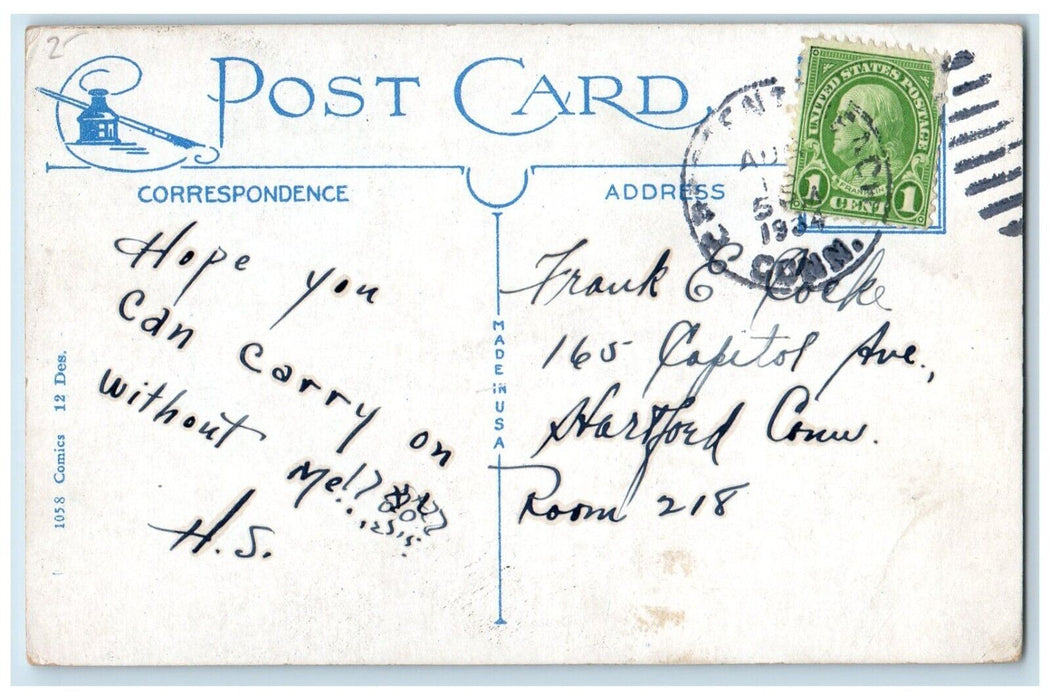 2
POST CARD
CORRESPONDENCE
ADDRESS
UNITED STATES POSTAGE
FRANKLIN
1 CENT 1
AUG
1934
CONN.
Hope you
Can carry on
without
Me!!
H.S.
Frank E Cocke
165 Capitol Ave.,
Hartford Conn.
Room 218
MADE IN USA
1058 Comics 12 Des.